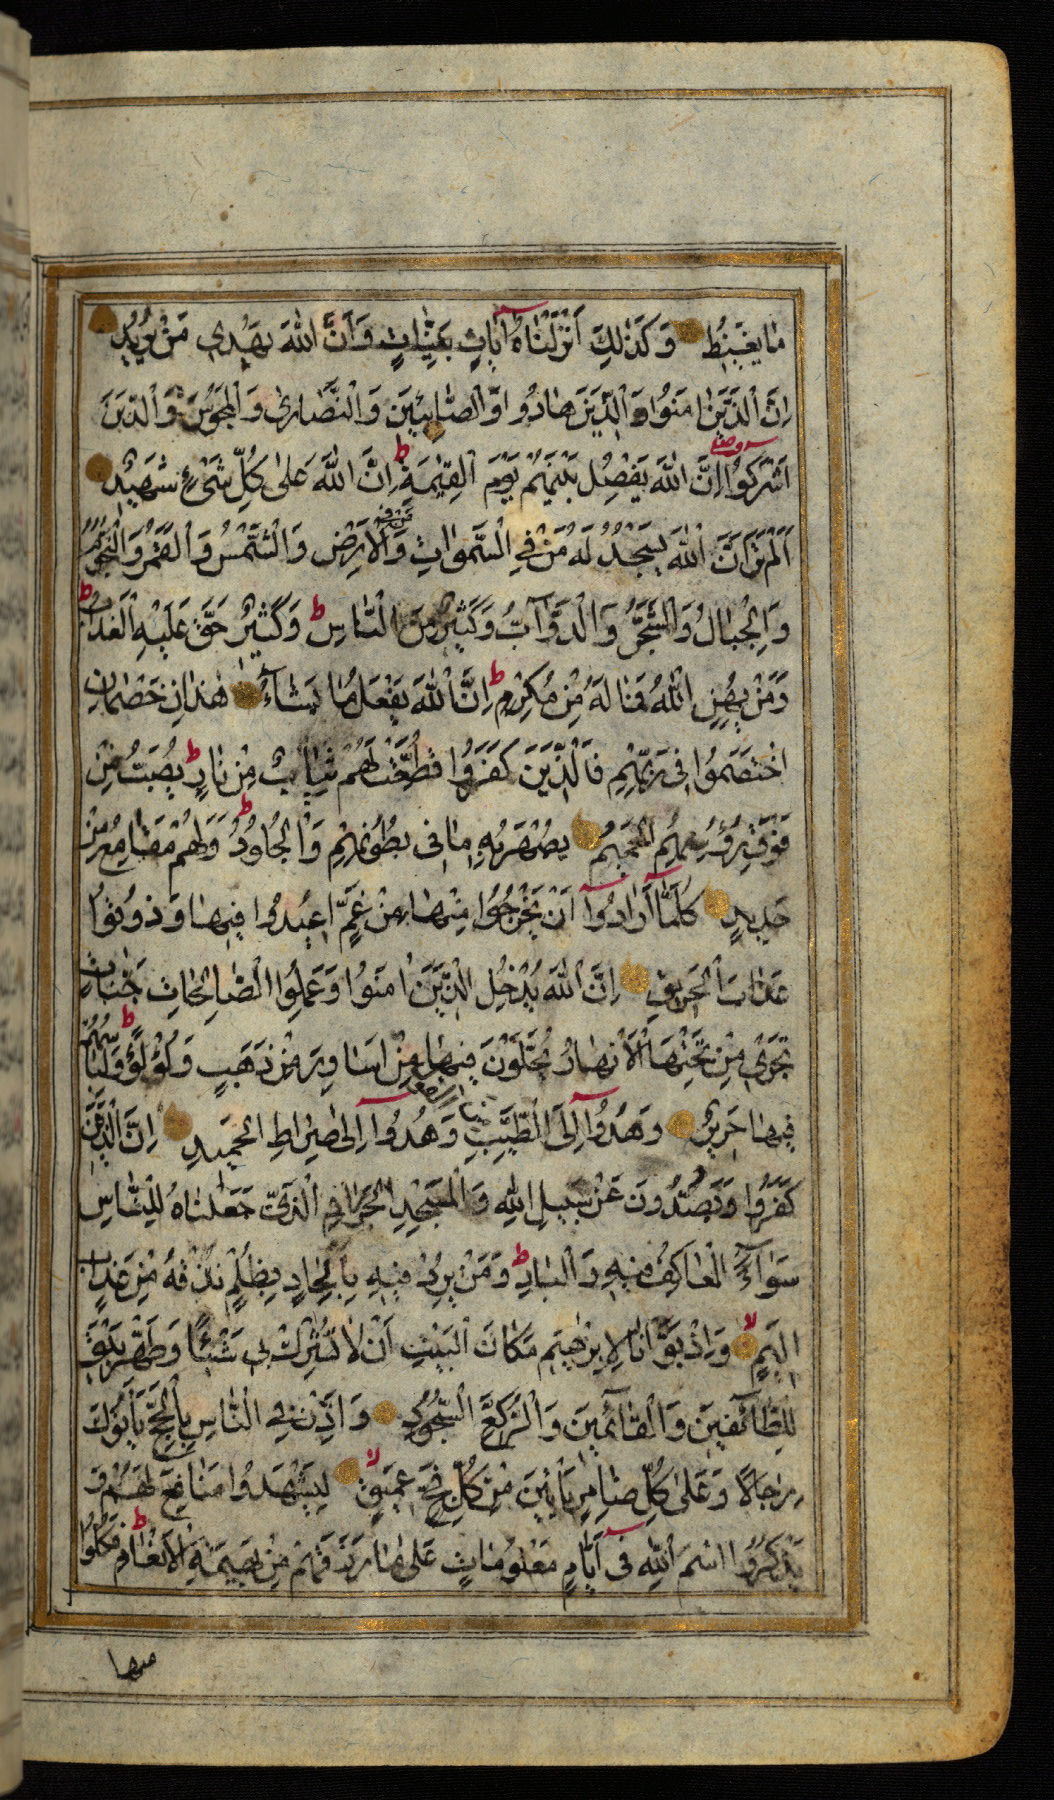 مَا يَغِيظُ وَكَذٰلِكَ اَنْزَلْنَاهُ آيَاتٍ بَيِّنَاتٍ وَاَنَّ اللّٰهَ يَهْدِي مَنْ يُرِيدُ
اِنَّ الَّذِينَ اٰمَنُوا وَالَّذِينَ هَادُوا وَالصَّابِئِينَ وَالنَّصَارٰى وَالْمَجُوسَ وَالَّذِينَ
اَشْرَكُوا اِنَّ اللّٰهَ يَفْصِلُ بَيْنَهُمْ يَوْمَ الْقِيٰمَةِ ط اِنَّ اللّٰهَ عَلٰى كُلِّ شَيْءٍ شَهِيدٌ
اَلَمْ تَرَ اَنَّ اللّٰهَ يَسْجُدُ لَهُ مَنْ فِي السَّمٰوَاتِ وَمَنْ فِي الْاَرْضِ وَالشَّمْسُ وَالْقَمَرُ وَالنُّجُومُ
وَالْجِبَالُ وَالشَّجَرُ وَالدَّوَآبُّ وَكَثِيرٌ مِنَ النَّاسِ ط وَكَثِيرٌ حَقَّ عَلَيْهِ الْعَذَابُ ط
وَمَنْ يُهِنِ اللّٰهُ فَمَا لَهُ مِنْ مُكْرِمٍ ط اِنَّ اللّٰهَ يَفْعَلُ مَا يَشَآءُ هٰذَانِ خَصْمَانِ
اخْتَصَمُوا فِي رَبِّهِمْ فَالَّذِينَ كَفَرُوا قُطِّعَتْ لَهُمْ ثِيَابٌ مِنْ نَارٍ ط يُصَبُّ مِنْ
فَوْقِ رُؤُسِهِمُ الْحَمِيمُ يُصْهَرُ بِهِ مَا فِي بُطُونِهِمْ وَالْجُلُودُ ط وَلَهُمْ مَقَامِعُ مِنْ
حَدِيدٍ كُلَّمَا اَرَادُوآ اَنْ يَخْرُجُوا مِنْهَا مِنْ غَمٍّ اُعِيدُوا فِيهَا وَذُوقُوا
عَذَابَ الْحَرِيقِ اِنَّ اللّٰهَ يُدْخِلُ الَّذِينَ اٰمَنُوا وَعَمِلُوا الصَّالِحَاتِ جَنَّاتٍ
تَجْرِي مِنْ تَحْتِهَا الْاَنْهَارُ يُحَلَّوْنَ فِيهَا مِنْ اَسَاوِرَ مِنْ ذَهَبٍ وَلُؤْلُؤًا ط وَلِبَاسُهُمْ
فِيهَا حَرِيرٌ وَهُدُوآ اِلَى الطَّيِّبِ مِنَ الْقَوْلِ وَهُدُوآ اِلٰى صِرَاطِ الْحَمِيدِ اِنَّ الَّذِينَ
كَفَرُوا وَيَصُدُّونَ عَنْ سَبِيلِ اللّٰهِ وَالْمَسْجِدِ الْحَرَامِ الَّذِي جَعَلْنَاهُ لِلنَّاسِ
سَوَآءً الْعَاكِفُ فِيهِ وَالْبَادِ ط وَمَنْ يُرِدْ فِيهِ بِاِلْحَادٍ بِظُلْمٍ نُذِقْهُ مِنْ عَذَابٍ
اَلِيمٍ وَاِذْ بَوَّأْنَا لِاِبْرٰهِيمَ مَكَانَ الْبَيْتِ اَنْ لَا تُشْرِكْ بِي شَيْئًا وَطَهِّرْ بَيْتِيَ
لِلطَّآئِفِينَ وَالْقَآئِمِينَ وَالرُّكَّعِ السُّجُودِ وَاَذِّنْ فِي النَّاسِ بِالْحَجِّ يَأْتُوكَ
رِجَالًا وَعَلٰى كُلِّ ضَامِرٍ يَأْتِينَ مِنْ كُلِّ فَجٍّ عَمِيقٍ لِيَشْهَدُوا مَنَافِعَ لَهُمْ وَ
يَذْكُرُوا اسْمَ اللّٰهِ فِي اَيَّامٍ مَعْلُومَاتٍ عَلٰى مَا رَزَقَهُمْ مِنْ بَهِيمَةِ الْاَنْعَامِ ط فَكُلُوا
منها